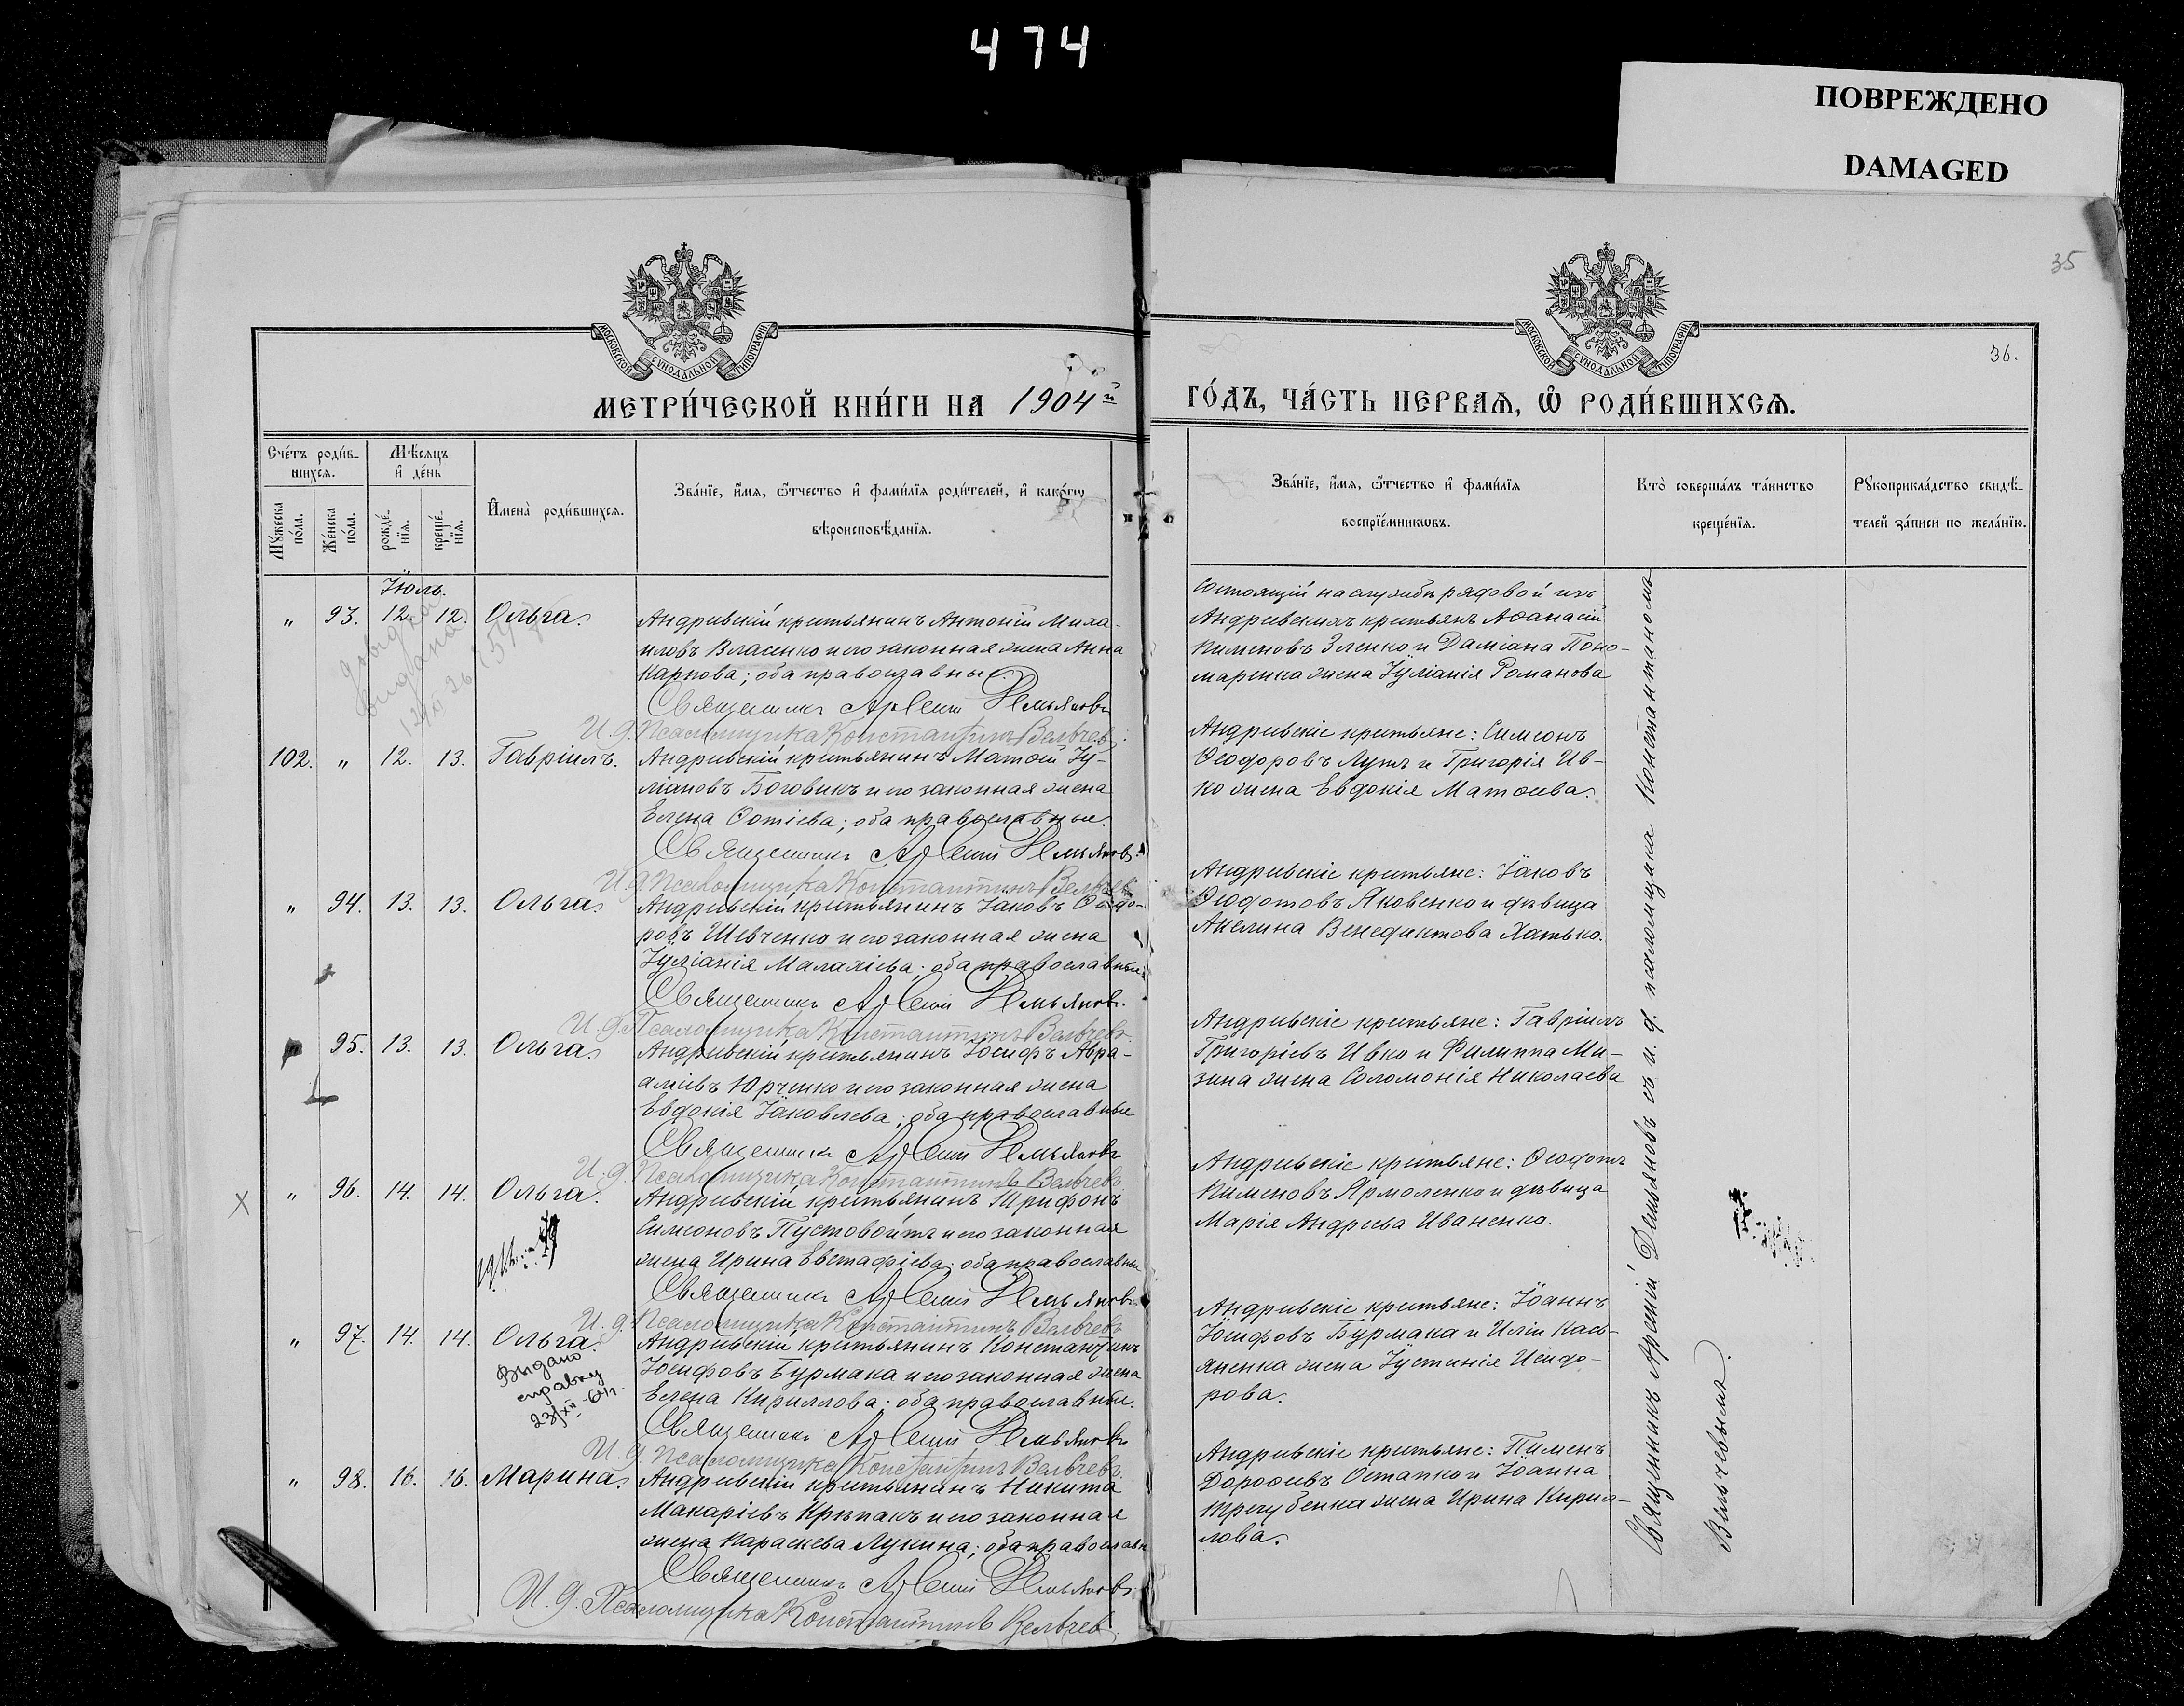 474
ПОВРЕЖДЕНО
DAMAGED
35
36.
МОСКОВСКОЙ СѴНОДАЛЬНОЙ ТИПОГРАФІИ
МОСКОВСКОЙ СѴНОДАЛЬНОЙ ТИПОГРАФІИ
МЕТРИ́ЧЕСКОЙ КНИ́ГИ НА 1904й
ГО́ДЪ, ЧА́СТЬ ПЕРВАѦ, Ѽ РОДИ́ВШИХСѦ.
Сче́тъ роди́в-
шихсѧ.
Мꙋ́жеска
по́ла.
Же́нска
по́ла.
Мѣ́сѧцъ
и҆ де́нь
рожде́-
нїѧ.
креще́-
нїѧ.
И҆мена̀ роди́вшихсѧ.
Зва́нїе, и҆́мѧ, ѻ҆́тчество и҆ фами́лїѧ роди́телей, и҆ како́гѡ
вѣроисповѣ́данїѧ.
Зва́нїе, и҆́мѧ, ѻ҆́тчество и҆ фами́лїѧ
воспрїе́мникѡвъ.
Кто̀ соверша́лъ та́инство
креще́нїѧ.
Рꙋкоприкла́дство свидѣ́-
телей за́писи по жела́нїю.
Іюль.
" 93. 12. 12. Ольга.
Андреевскій крестьянинъ Антоній Миха-
иловъ Власенко и его законная жена Анна
Карпова; оба православные.
Священникъ Арсеній Демьяновъ
И. д. Псаломщика Константинъ Вельчевъ
Состоящій на службѣ рядовой изъ
Андреевскихъ крестьянъ Аѳанасій
Пименовъ Зленко и Даміана Поно-
маренка жена Іуліанія Романова
102. " 12. 13. Гавріилъ.
Андреевскій крестьянинъ Матѳій Іу-
ліановъ Боговикъ и его законная жена
Елена Фотіева; оба православные.
Священникъ Арсеній Демьяновъ
И. д. Псаломщика Константинъ Вельчевъ
Андреевскіе крестьяне: Симеонъ
Ѳеодоровъ Лутъ и Григорія Ив-
ко жена Евдокія Матѳеева.
" 94. 13. 13. Ольга.
Андреевскій крестьянинъ Іаковъ Ѳеодо-
ровъ Шевченко и его законная жена
Іуліанія Малахіева; оба православные
Священникъ Арсеній Демьяновъ.
И. д. Псаломщика Константинъ Вельчевъ
Андреевскіе крестьяне: Іаковъ
Ѳеодотовъ Яковенко и дѣвица
Акелина Венедиктова Хатько.
95. 13. 13. Ольга.
Андреевскій крестьянинъ Іосифъ Авра-
аміевъ Юрченко и его законная жена
Евдокія Іаковлева; оба православные
Священникъ Арсеній Демьяновъ
И. д. Псаломщика Константинъ Вельчевъ
Андреевскіе крестьяне: Гавріилъ
Григоріевъ Ивко и Филиппа Ми-
зина жена Соломонія Николаева
" 96. 14. 14. Ольга.
Андреевскій крестьянинъ Трифонъ
Симеоновъ Пустовойтъ и его законная
жена Ирина Евстафіева; оба православные
Священникъ Арсеній Демьяновъ
И. д. Псаломщика Константинъ Вельчевъ
Андреевскіе крестьяне: Ѳеодотъ
Пименовъ Ярмоленко и дѣвица
Марія Андреева Иваненко.
" 97. 14. 14. Ольга.
Выдано
справку
23/XII-64г.
Андреевскій крестьянинъ Константинъ
Іосифовъ Бурмака и его законная жена
Елена Кириллова; оба православные.
Священникъ Арсеній Демьяновъ
И. д. Псаломщика Константинъ Вельчевъ
Андреевскіе крестьяне: Іоаннъ
Іосифовъ Бурмака и Иліи Кась-
яненка жена Іустинія Исидо-
рова.
" 98. 16. 16. Марина.
Андреевскій крестьянинъ Никита
Макаріевъ Крѣпакъ и его законная
жена Параскева Лукина; оба православн
Священникъ Арсеній Демьяновъ
И. д. Псаломщика Константинъ Вельчевъ
Андреевскіе крестьяне: Пименъ
Дороѳеевъ Остапко и Іоанна
Трегубенка жена Ирина Кирил-
лова.
Священникъ Арсеній Демьяновъ съ и. д. псаломщика Константиномъ
Вельчевымъ.